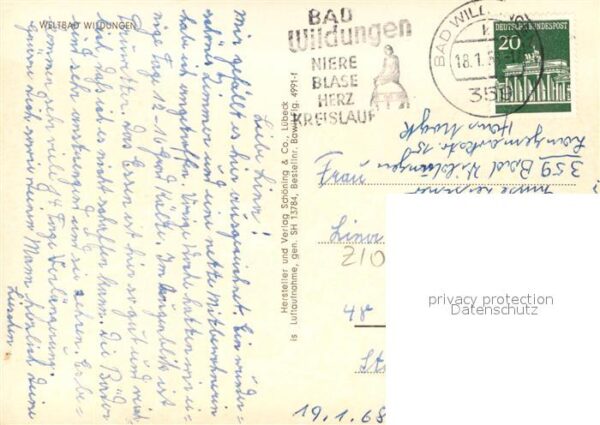 WELTBAD WILDUNGEN
BAD
Wildungen
NIERE
BLASE
HERZ
KREISLAUF
BAD WILDUNGEN
18.1.
359
DEUTSCHE BUNDESPOST
20
Liebe Lina!
Mir gefällt es hier ausgezeichnet. Ein wunder=
schönes Zimmer und eine nette Mitbewohnerin
habe ich angetroffen. Vorige Woche hatten wir ei=
nige Tage 12-16 Grad Kälte. Im Augenblick ist
Tauwetter. Das Essen ist hier so gut und reich=
lich, daß ich es nicht schaffen kann. Die Bäder
sind sehr anstrengend und sie zehren. Es be=
kommen sehr viele 4 Tage Verlängerung.
Grüße Dich, und Deinen Mann herzlich Deine
Lieschen
Hersteller und Verlag Schöning & Co., Lübeck
is Luftaufnahme, gen. SH 13784, Bestellnr. Bawild/fg. 4991-f
359 Bad Wildungen
Frau
Lina
210
48
19.1.68
privacy protection
Datenschutz